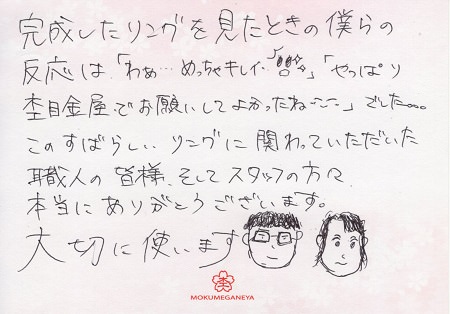 完成したリングを見たときの僕らの
反応は「わぁ…めっちゃキレイ…」「やっぱり
杢目金屋でお願いしてよかったね〜〜」でした。。。
このすばらしいリングに関わっていただいた
職人の皆様、そしてスタッフの方々、
本当にありがとうございます。
大切に使います
杢
MOKUMEGANEYA